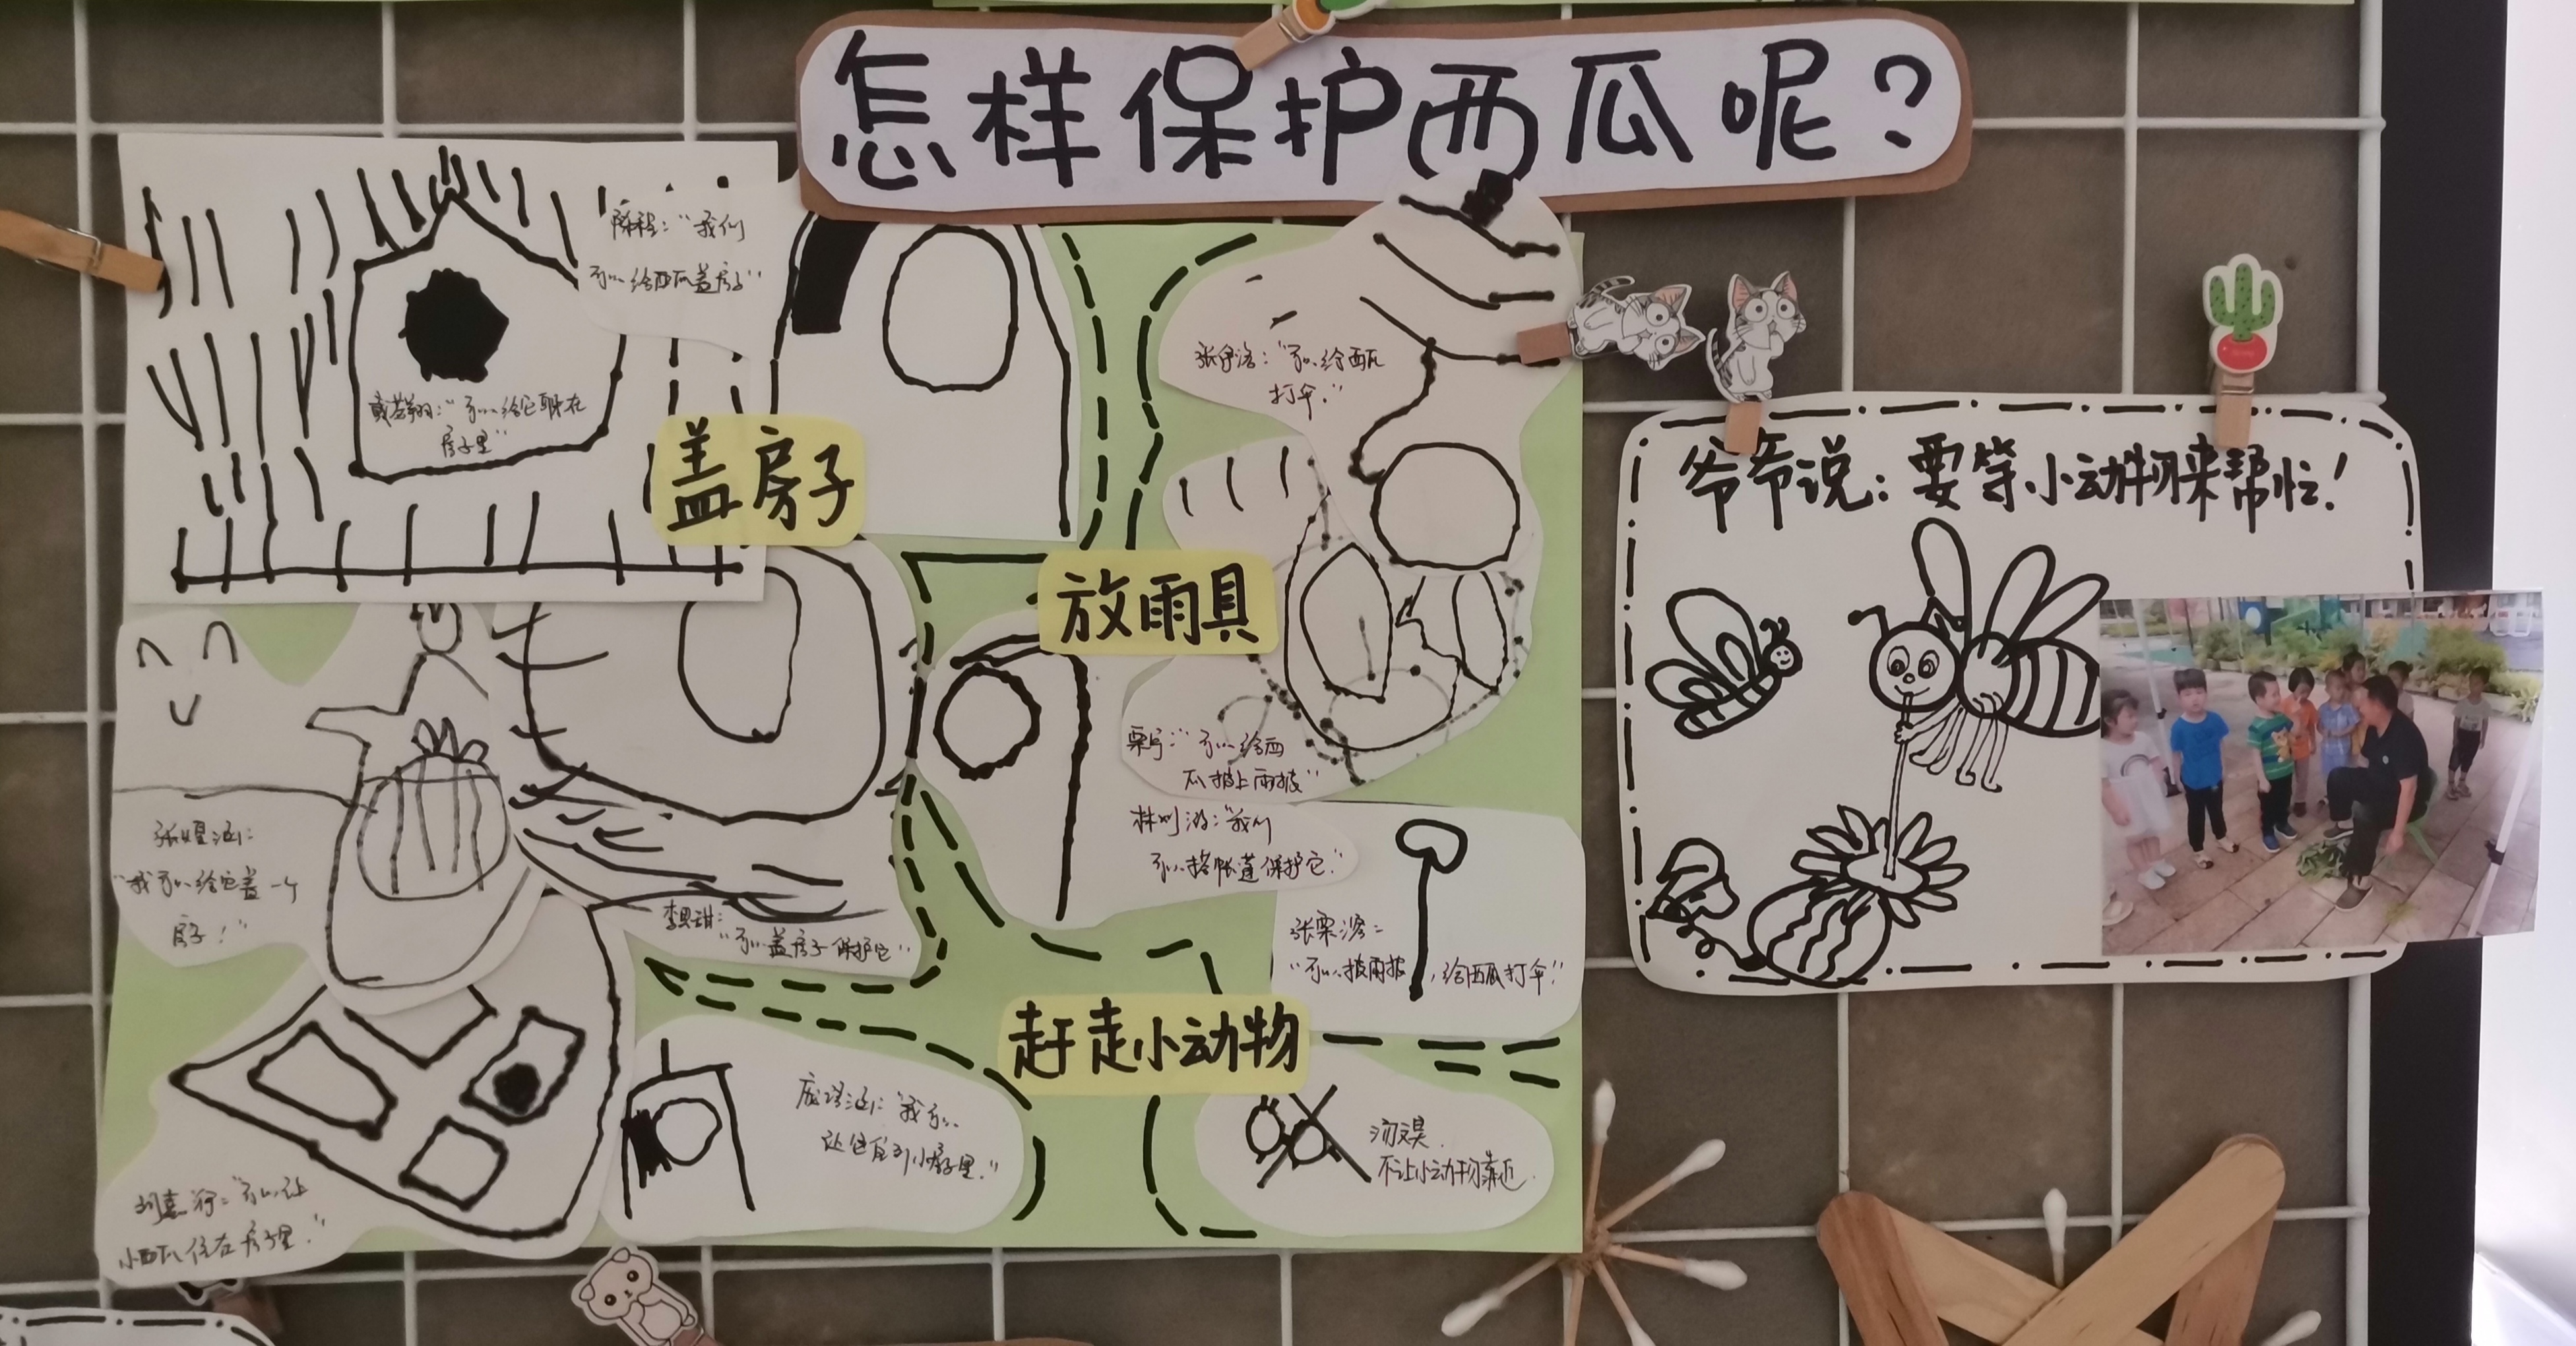 怎样保护西瓜呢？
陈程："我们
可以给西瓜盖房子"
戴若翔："可以给它躲在
房子里"
盖房子
张伊洛："可以给西瓜
打伞。"
放雨具
爷爷说：要等小动物来帮忙！
可以给西
瓜披上雨披"
"我们
可以搭帐蓬保护它."
"我可以给它盖一个
房子！"
"可以盖房子保护它"
张栗溶：
"可以披雨披，给西瓜打伞"
赶走小动物
"我可以
让它住到小房子里."
汤文昊
不让小动物靠近.
刘嘉行："可以让
小西瓜住在房子里."